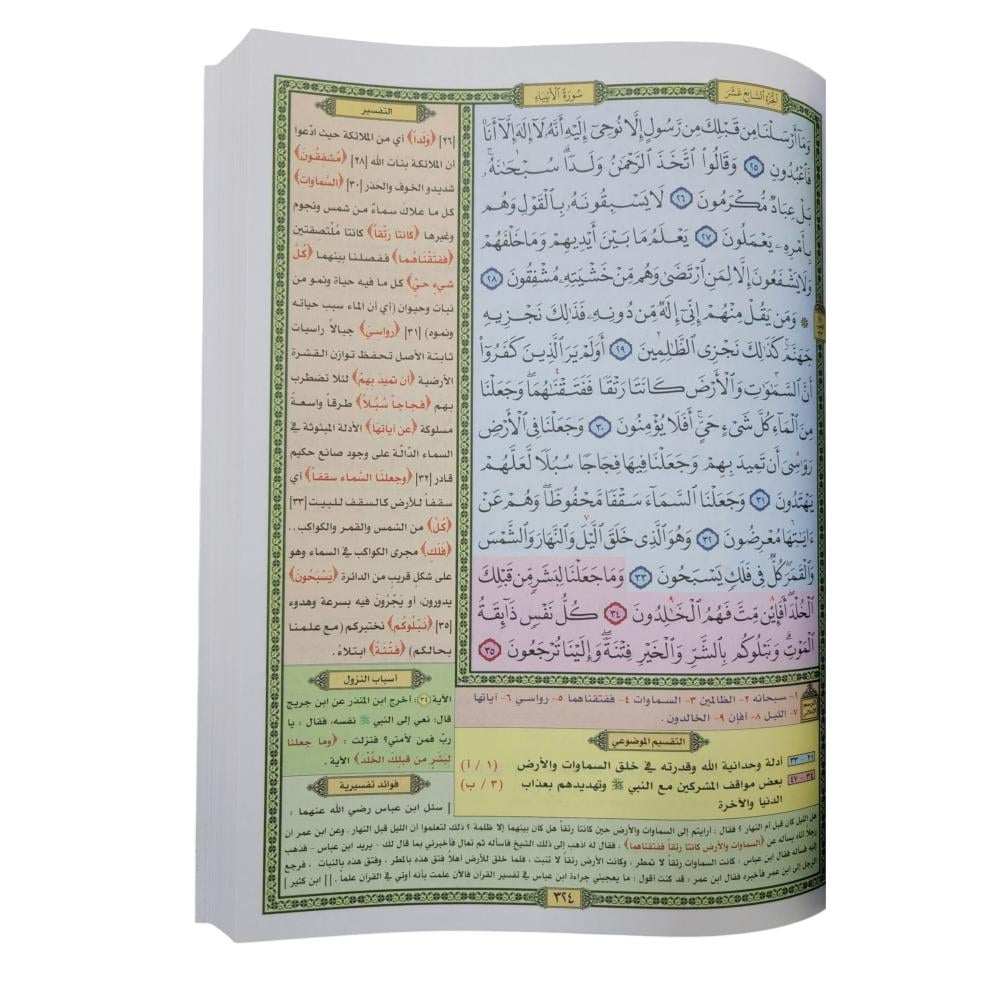 الجزء السابع عشر
سورة الأنبياء
وَمَآ أَرْسَلْنَا مِن قَبْلِكَ مِن رَّسُولٍ إِلَّا نُوحِىٓ إِلَيْهِ أَنَّهُۥ لَآ إِلَٰهَ إِلَّآ أَنَا۠
فَٱعْبُدُونِ ٢٥ وَقَالُوا۟ ٱتَّخَذَ ٱلرَّحْمَٰنُ وَلَدًۭا ۗ سُبْحَٰنَهُۥ ۚ
بَلْ عِبَادٌۭ مُّكْرَمُونَ ٢٦ لَا يَسْبِقُونَهُۥ بِٱلْقَوْلِ وَهُم
بِأَمْرِهِۦ يَعْمَلُونَ ٢٧ يَعْلَمُ مَا بَيْنَ أَيْدِيهِمْ وَمَا خَلْفَهُمْ
وَلَا يَشْفَعُونَ إِلَّا لِمَنِ ٱرْتَضَىٰ وَهُم مِّنْ خَشْيَتِهِۦ مُشْفِقُونَ ٢٨
۞ وَمَن يَقُلْ مِنْهُمْ إِنِّىٓ إِلَٰهٌۭ مِّن دُونِهِۦ فَذَٰلِكَ نَجْزِيهِ
جَهَنَّمَ ۚ كَذَٰلِكَ نَجْزِى ٱلظَّٰلِمِينَ ٢٩ أَوَلَمْ يَرَ ٱلَّذِينَ كَفَرُوٓا۟
أَنَّ ٱلسَّمَٰوَٰتِ وَٱلْأَرْضَ كَانَتَا رَتْقًۭا فَفَتَقْنَٰهُمَا ۖ وَجَعَلْنَا
مِنَ ٱلْمَآءِ كُلَّ شَىْءٍ حَىٍّ ۖ أَفَلَا يُؤْمِنُونَ ٣٠ وَجَعَلْنَا فِى ٱلْأَرْضِ
رَوَٰسِىَ أَن تَمِيدَ بِهِمْ وَجَعَلْنَا فِيهَا فِجَاجًۭا سُبُلًۭا لَّعَلَّهُمْ
يَهْتَدُونَ ٣١ وَجَعَلْنَا ٱلسَّمَآءَ سَقْفًۭا مَّحْفُوظًۭا ۖ وَهُمْ عَنْ
ءَايَٰتِهَا مُعْرِضُونَ ٣٢ وَهُوَ ٱلَّذِى خَلَقَ ٱلَّيْلَ وَٱلنَّهَارَ وَٱلشَّمْسَ
وَٱلْقَمَرَ ۖ كُلٌّۭ فِى فَلَكٍۢ يَسْبَحُونَ ٣٣ وَمَا جَعَلْنَا لِبَشَرٍۢ مِّن قَبْلِكَ
ٱلْخُلْدَ ۖ أَفَإِي۟ن مِّتَّ فَهُمُ ٱلْخَٰلِدُونَ ٣٤ كُلُّ نَفْسٍۢ ذَآئِقَةُ
ٱلْمَوْتِ ۗ وَنَبْلُوكُم بِٱلشَّرِّ وَٱلْخَيْرِ فِتْنَةًۭ ۖ وَإِلَيْنَا تُرْجَعُونَ ٣٥
الرسم الإملائي
١- سبحانه ٢- الظالمين ٣- السماوات ٤- ففتقناهما ٥- رواسي ٦- آياتها
٧- الليل ٨- أفإن ٩- الخالدون .
التقسيم الموضوعي
٢١ - ٣٣ أدلة وحدانية الله وقدرته في خلق السماوات والأرض (١ / أ)
٣٤ - ٤٧ بعض مواقف المشركين مع النبي ﷺ وتهديدهم بعذاب (٣ / ب)
الدنيا والآخرة
التفسير
[٢٦] ﴿وَلَداً﴾ أي من الملائكة حيث ادّعوا
أن الملائكة بنات الله [٢٨] ﴿مُشْفِقُونَ﴾
شديدو الخوف والحذر [٣٠] ﴿السَّماوات﴾
كل ما علاك سماءً من شمس ونجوم
وغيرها ﴿كانتا رَتْقاً﴾ كانتا مُلْتصقتين
﴿ففتَقْناهُما﴾ ففصلنا بينهما ﴿كُلَّ
شيءٍ حيّ﴾ كل ما فيه حياة ونمو من
نبات وحيوان (أي أن الماء سبب حياته
ونموه) [٣١] ﴿رواسيَ﴾ جبالاً راسيات
ثابتة الأصل تحفظ توازن القشرة
الأرضية ﴿أن تميدَ بهمْ﴾ لئلا تضطرب
بهم ﴿فجاجاً سُبُلاً﴾ طرقاً واسعة
مسلوكة ﴿عن آياتها﴾ الأدلة المبثوثة في
السماء الدّالّة على وجود صانع حكيم
قادر [٣٢] ﴿وجعلنا السَّماء سقفاً﴾ أي
سقفاً للأرض كالسقف للبيت [٣٣]
﴿كُلٌّ﴾ من الشمس والقمر والكواكب ..
﴿فَلَكٍ﴾ مجرى الكواكب في السماء وهو
على شكلٍ قريبٍ من الدائرة ﴿يَسْبَحُونَ﴾
يدورون، أو يَجْرُون فيه بسرعة وهدوء
[٣٥] ﴿نَبْلُوكُم﴾ نختبركم (مع علمنا
بحالكم) ﴿فتنَةً﴾ ابتلاءً.
أسباب النزول
الآية (٣٤): أخرج ابن المنذر عن ابن جريج
قال: نعي إلى النبي ﷺ نفسه، فقال : يا
ربّ فمن لأمتي؟ فنزلت : ﴿وما جعلنا
لبَشَرٍ من قبلِكَ الخُلْدَ﴾ الآية .
فوائد تفسيرية
| سئل ابن عباس رضي الله عنهما :
هل الليل كان قبل أم النهار ؟ فقال : أرأيتم إلى السماوات والأرض حين كانتا رتقاً هل كان بينهما إلا ظلمة ؟ ذلك لتعلموا أن الليل قبل النهار . وعن ابن عمر أن
رجلاً أتاه يسأله عن ﴿السماوات والأرض كانتا رتقاً ففتقناهما﴾ ، فقال له اذهب إلى ذلك الشيخ فاسأله ثم تعال فأخبرني بما قال لك - يريد ابن عباس - فذهب
إليه فسأله فقال ابن عباس : كانت السماوات رتقاً لا تمطر ، وكانت الأرض رتقاً لا تنبت ، فلما خلق للأرض أهلاً فتق هذه بالمطر ، وفتق هذه بالنبات ، فرجع
الرجل إلى ابن عمر فأخبره فقال ابن عمر : قد كنت أقول : ما يعجبني جراءة ابن عباس في تفسير القرآن فالآن علمت بأنه أوتي في القرآن علماً . | [ ابن كثير ]
٣٢٤